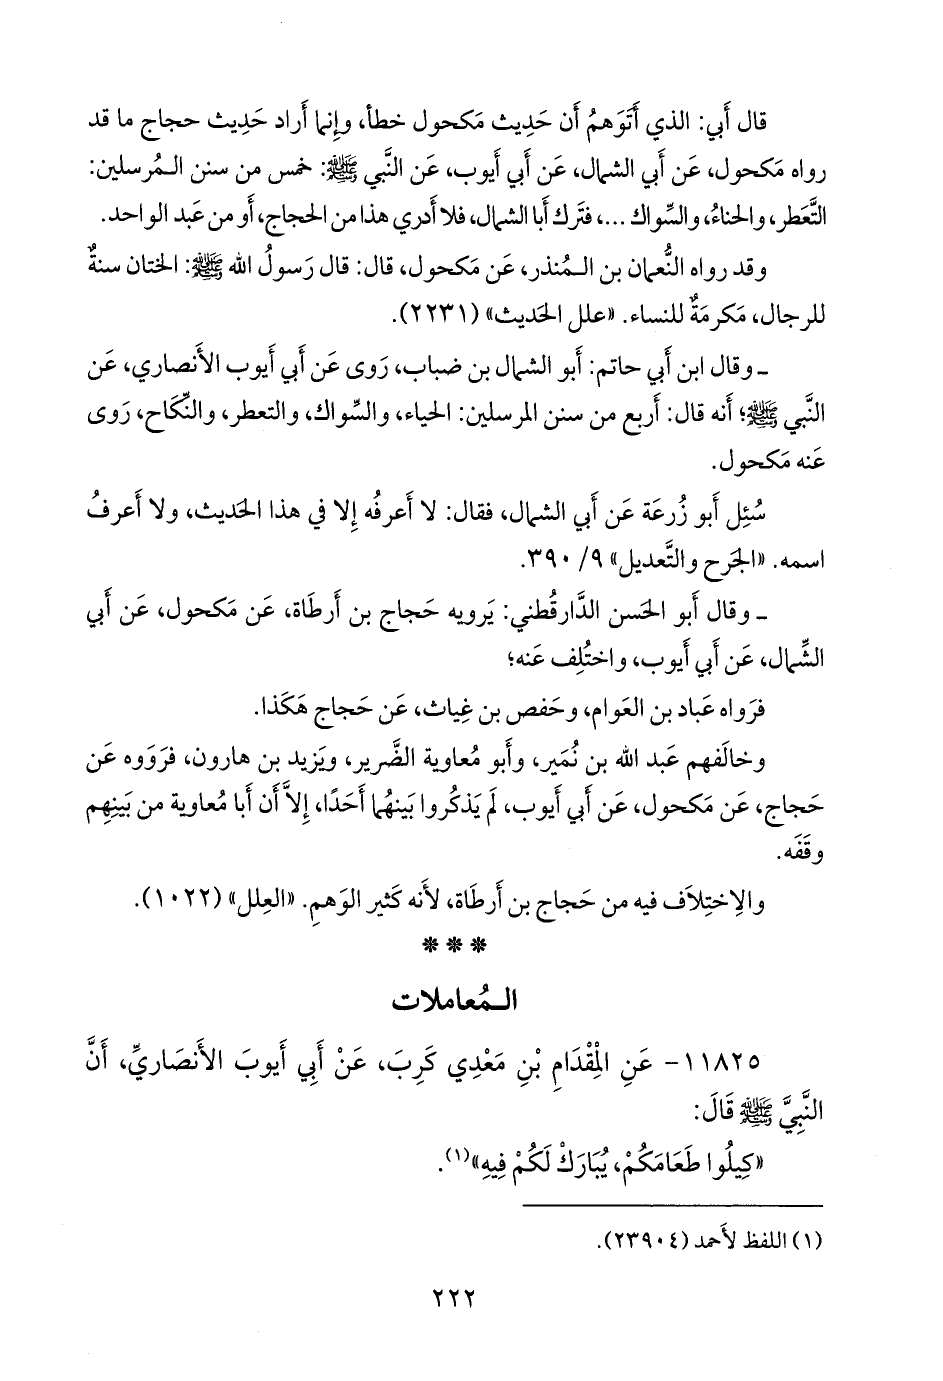 قال أَبي: الذي أَتَوَهمُ أَن حَديث مَكحول خطأ، وإِنما أَراد حَدِيث حجاج ما قد
رواه مَكحول، عَن أَبي الشمال، عَن أَبي أَيوب، عَن النَّبي ﷺ: خمس من سنن الـمُرسلين:
التَّعَطر، والحناءُ، والسِّواك ...، فتَرك أَبا الشمال، فلا أَدري هذا من الحجاج، أَو من عَبد الواحد.
وقد رواه النُّعمان بن الـمُنذر، عَن مَكحول، قال: قال رَسولُ الله ﷺ: الختان سنةٌ
للرجال، مَكرمَةٌ للنساء. «علل الحَديث» (٢٢٣١).
ـ وقال ابن أَبي حاتم: أَبو الشمال بن ضباب، رَوى عَن أَبي أَيوب الأَنصاري، عَن
النَّبي ﷺ؛ أَنه قال: أَربع من سنن المرسلين: الحياء، والسِّواك، والتعطر، والنِّكاح، رَوى
عَنه مَكحول.
سُئِل أَبو زُرعَة عَن أَبي الشمال، فقال: لا أَعرفُه إِلا في هذا الحَديث، ولا أَعرفُ
اسمه. «الجَرح والتَّعديل» ٩/ ٣٩٠.
ـ وقال أَبو الحَسن الدَّارقُطني: يَرويه حَجاج بن أَرطَاة، عَن مَكحول، عَن أَبي
الشِّمال، عَن أَبي أَيوب، واختُلِف عَنه؛
فرَواه عَباد بن العَوام، وحَفص بن غِياث، عَن حَجاج هَكَذا.
وخالَفهم عَبد الله بن نُمَير، وأَبو مُعاوية الضَّرير، ويَزيد بن هارون، فرَوَوه عَن
حَجاج، عَن مَكحول، عَن أَبي أَيوب، لَم يَذكُروا بَينهُما أَحَدًا، إِلاَّ أَن أَبا مُعاوية من بَينِهِم
وقَفَه.
والاِختِلاَف فيه من حَجاج بن أَرطاة، لأَنه كَثير الوَهمِ. «العِلل» (١٠٢٢).
* * *
الـمُعاملات
١١٨٢٥- عَنِ الْمِقْدَامِ بْنِ مَعْدِي كَرِبَ، عَنْ أَبِي أَيوبَ الأَنصَارِيِّ، أَنَّ
النَّبِيَّ ﷺ قَالَ:
«كِيلُوا طَعَامَكُمْ، يُبَارَكْ لَكُمْ فِيهِ»(١).
(١) اللفظ لأَحمد (٢٣٩٠٤).
٢٢٢